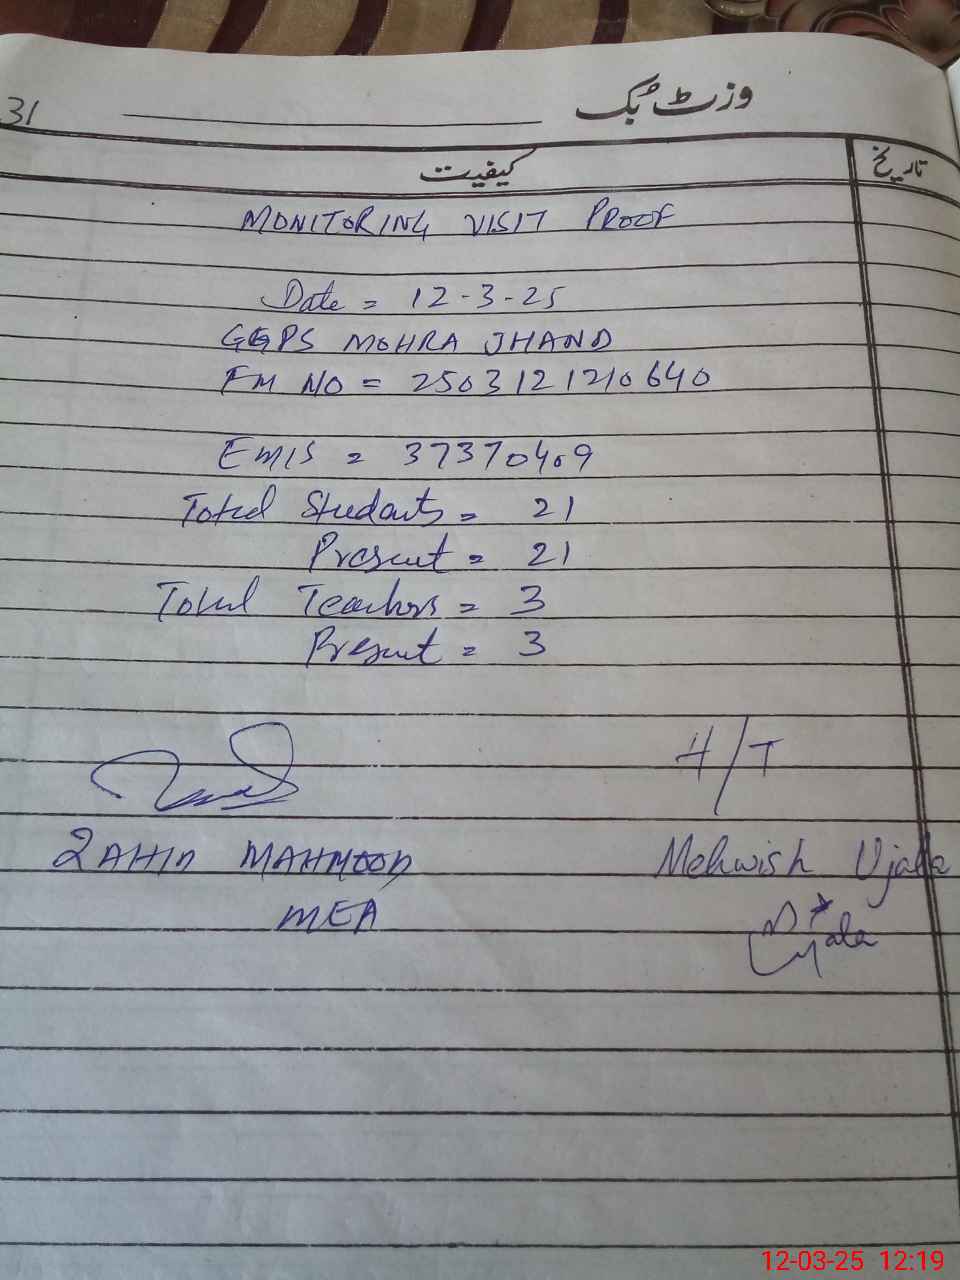 وزٹ بُک
31
کیفیت
تاریخ
MONITORING VISIT PROOF
Date = 12-3-25
GGPS MOHRA JHAND
FM NO = 2503121210640
EMIS = 37370409
Total Students = 21
Present = 21
Total Teachers = 3
Present = 3
H/T
ZAHID MAHMOOD
Mehwish Ujala
MEA
Ujala
12-03-25 12:19